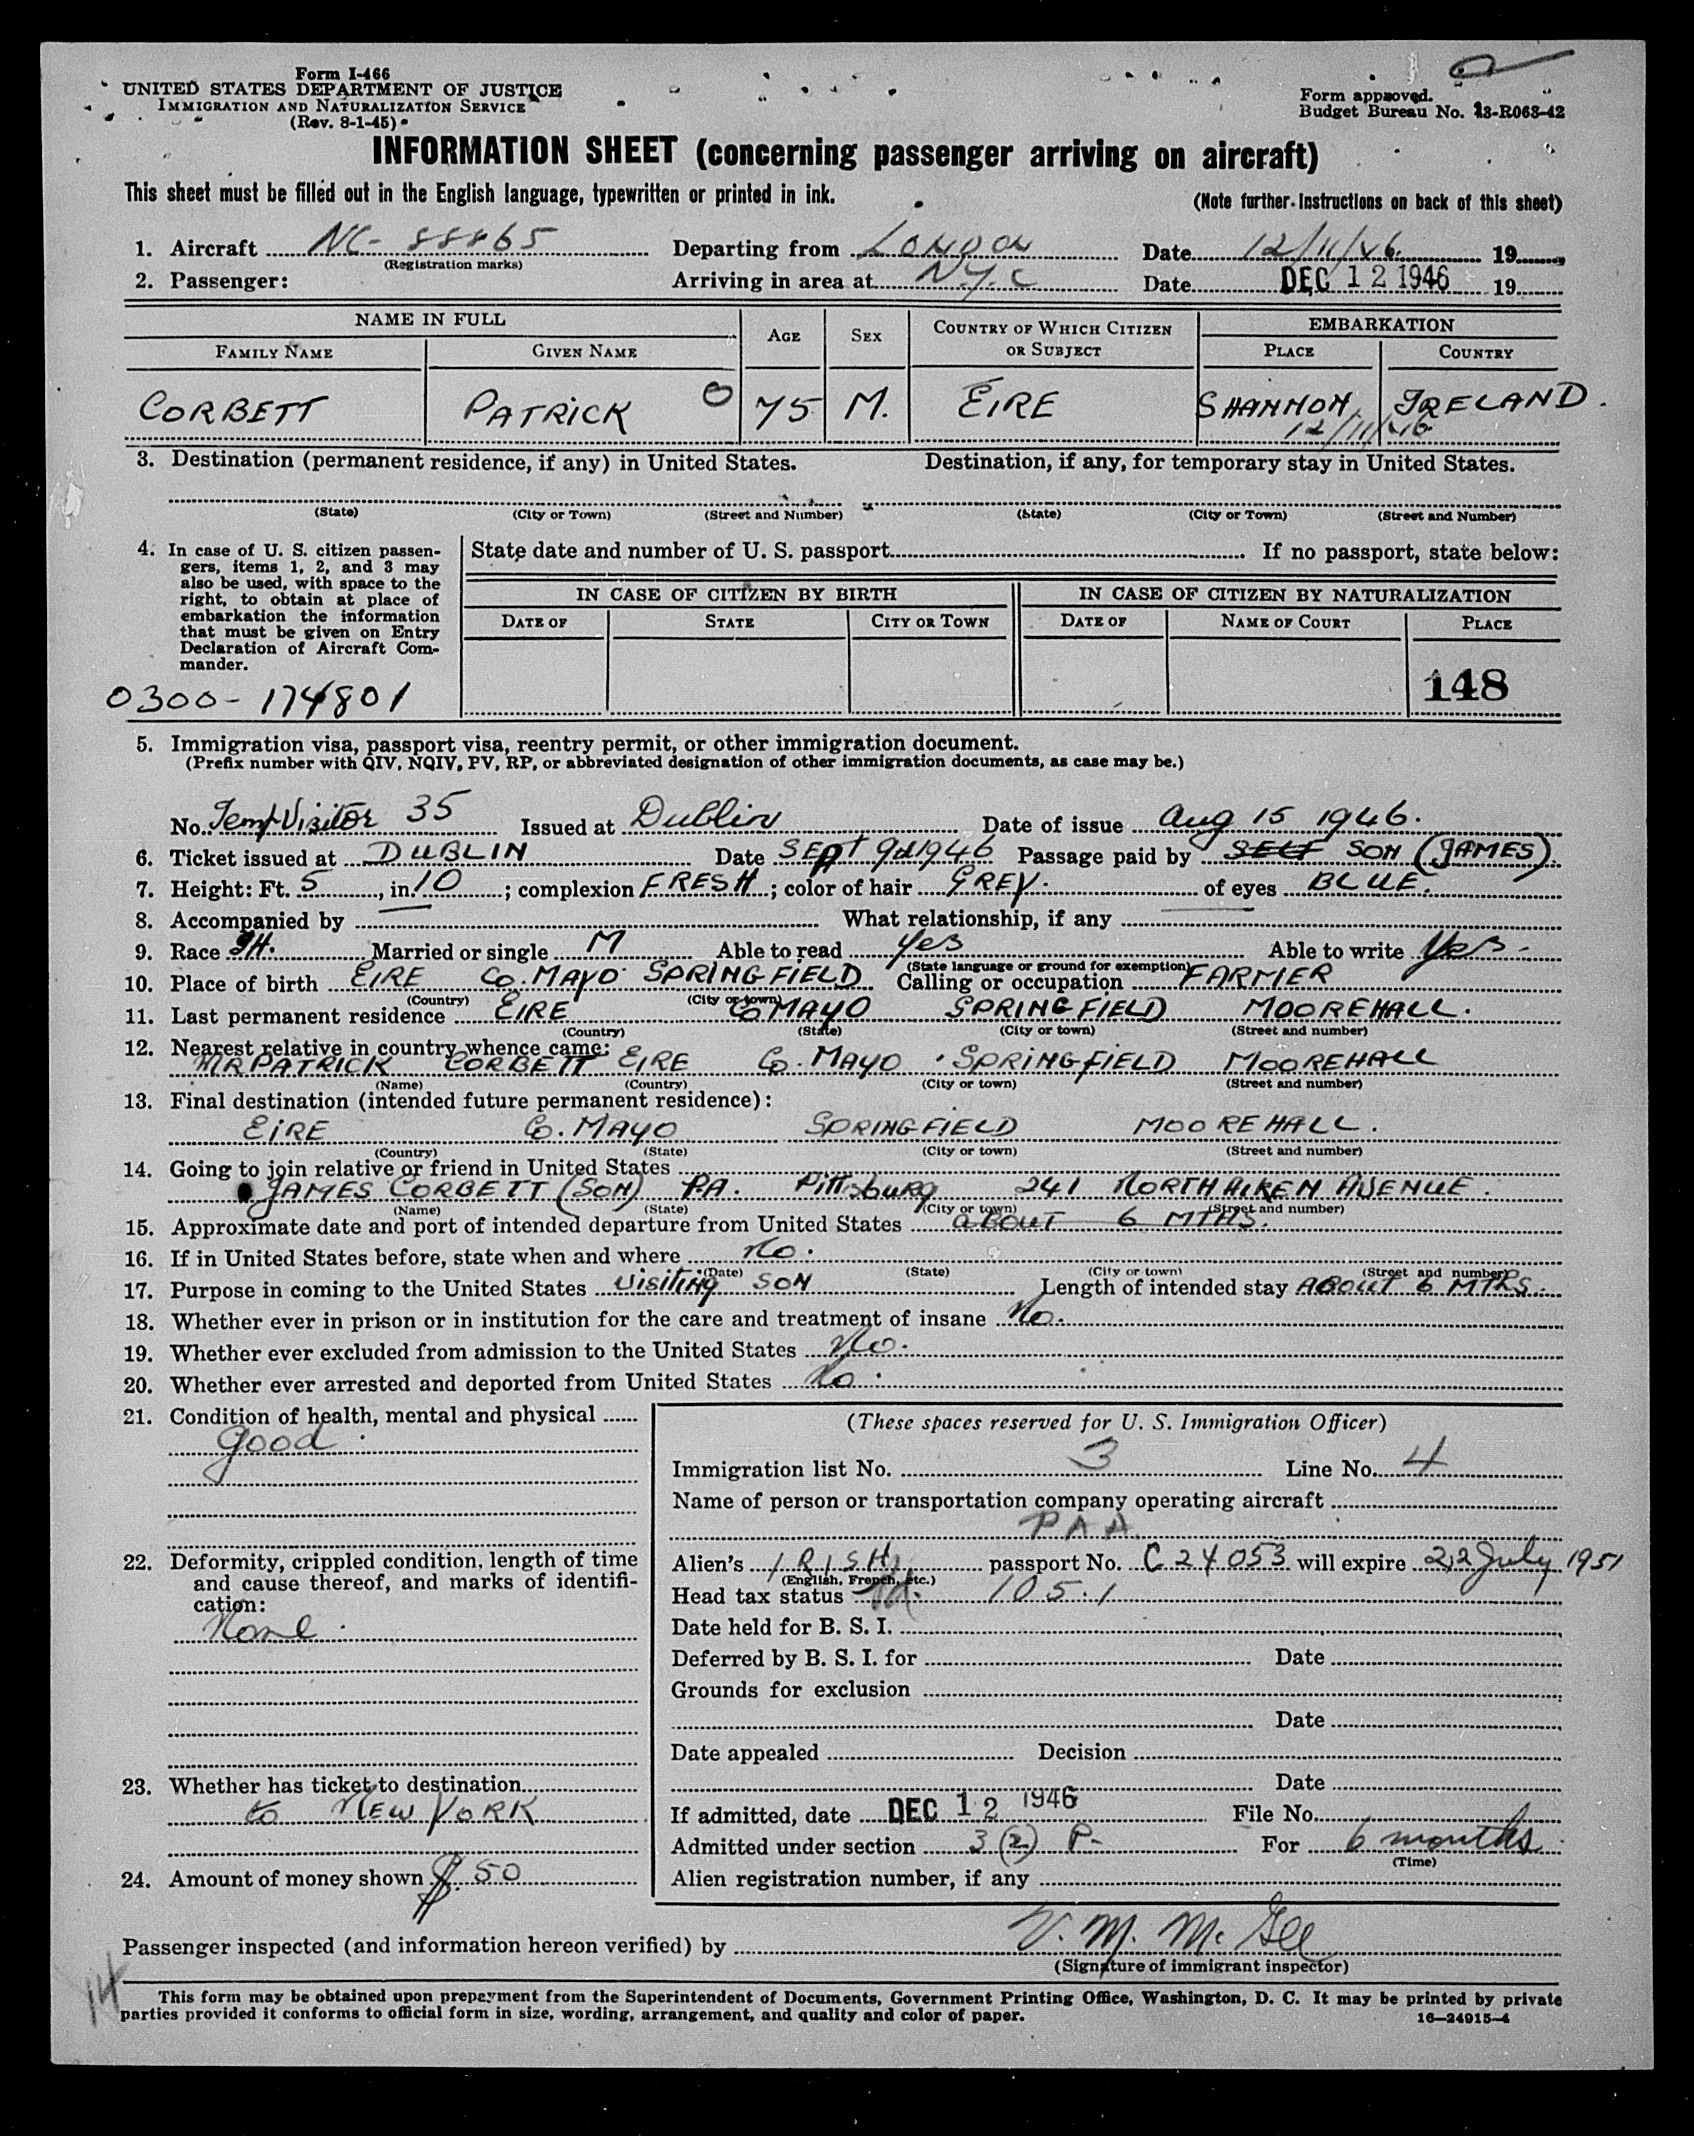 Form I-466
UNITED STATES DEPARTMENT OF JUSTICE
IMMIGRATION AND NATURALIZATION SERVICE
(Rev. 8-1-45)
Form approved.
Budget Bureau No. 43-R063-42
INFORMATION SHEET (concerning passenger arriving on aircraft)
This sheet must be filled out in the English language, typewritten or printed in ink.
(Note further instructions on back of this sheet)
1. Aircraft NC-88865 Departing from LONDON Date 12/11/46 19
(Registration marks)
2. Passenger: Arriving in area at N.Y.C Date DEC 12 1946 19
NAME IN FULL AGE SEX COUNTRY OF WHICH CITIZEN OR SUBJECT EMBARKATION
FAMILY NAME GIVEN NAME PLACE COUNTRY
CORBETT PATRICK 0 75 M. EIRE SHANNON IRELAND.
12/11/46
3. Destination (permanent residence, if any) in United States. Destination, if any, for temporary stay in United States.
(State) (City or Town) (Street and Number) (State) (City or Town) (Street and Number)
4. In case of U. S. citizen passen-
gers, items 1, 2, and 3 may
also be used, with space to the
right, to obtain at place of
embarkation the information
that must be given on Entry
Declaration of Aircraft Com-
mander.
0300-174801
State date and number of U. S. passport If no passport, state below:
IN CASE OF CITIZEN BY BIRTH IN CASE OF CITIZEN BY NATURALIZATION
DATE OF STATE CITY OR TOWN DATE OF NAME OF COURT PLACE
148
5. Immigration visa, passport visa, reentry permit, or other immigration document.
(Prefix number with QIV, NQIV, PV, RP, or abbreviated designation of other immigration documents, as case may be.)
No. Temp Visitor 35 Issued at Dublin Date of issue Aug 15 1946.
6. Ticket issued at DUBLIN Date SEPT 9th 1946 Passage paid by SELF SON (JAMES).
7. Height: Ft. 5, in. 10; complexion FRESH; color of hair GREY. of eyes BLUE.
8. Accompanied by — What relationship, if any —
9. Race IH. Married or single M Able to read Yes Able to write Yes.
(State language or ground for exemption)
10. Place of birth EIRE Co. MAYO SPRINGFIELD Calling or occupation FARMER
(Country) (City or town)
11. Last permanent residence EIRE Co MAYO SPRINGFIELD MOOREHALL.
(Country) (State) (City or town) (Street and number)
12. Nearest relative in country whence came:
MR PATRICK CORBETT EIRE Co. MAYO. SPRINGFIELD MOOREHALL
(Name) (Country) (City or town) (Street and number)
13. Final destination (intended future permanent residence):
EIRE Co. MAYO SPRINGFIELD MOOREHALL.
(Country) (State) (City or town) (Street and number)
14. Going to join relative or friend in United States
JAMES CORBETT (SON) PA. Pittsburg 241 NORTH AIKEN AVENUE.
(Name) (State) (City or town) (Street and number)
15. Approximate date and port of intended departure from United States ABOUT 6 MTHS.
16. If in United States before, state when and where No.
(Date) (State) (City or town) (Street and number)
17. Purpose in coming to the United States Visiting SON Length of intended stay ABOUT 6 MTHS.
18. Whether ever in prison or in institution for the care and treatment of insane No.
19. Whether ever excluded from admission to the United States No.
20. Whether ever arrested and deported from United States No.
21. Condition of health, mental and physical
Good.
22. Deformity, crippled condition, length of time
and cause thereof, and marks of identifi-
cation:
None.
23. Whether has ticket to destination
to NEW YORK
24. Amount of money shown $. 50
(These spaces reserved for U. S. Immigration Officer)
Immigration list No. 3 Line No. 4
Name of person or transportation company operating aircraft
PAA
Alien's IRISH passport No. C 24053 will expire 22 July 1951
(English, French, etc.)
Head tax status 105.1
Date held for B. S. I.
Deferred by B. S. I. for Date
Grounds for exclusion
Date
Date appealed Decision
Date
If admitted, date DEC 12 1946 File No.
Admitted under section 3(2) P- For 6 months
(Time)
Alien registration number, if any
Passenger inspected (and information hereon verified) by V. M. McGee
(Signature of immigrant inspector)
14
This form may be obtained upon prepayment from the Superintendent of Documents, Government Printing Office, Washington, D. C. It may be printed by private
parties provided it conforms to official form in size, wording, arrangement, and quality and color of paper.
16—24915-4